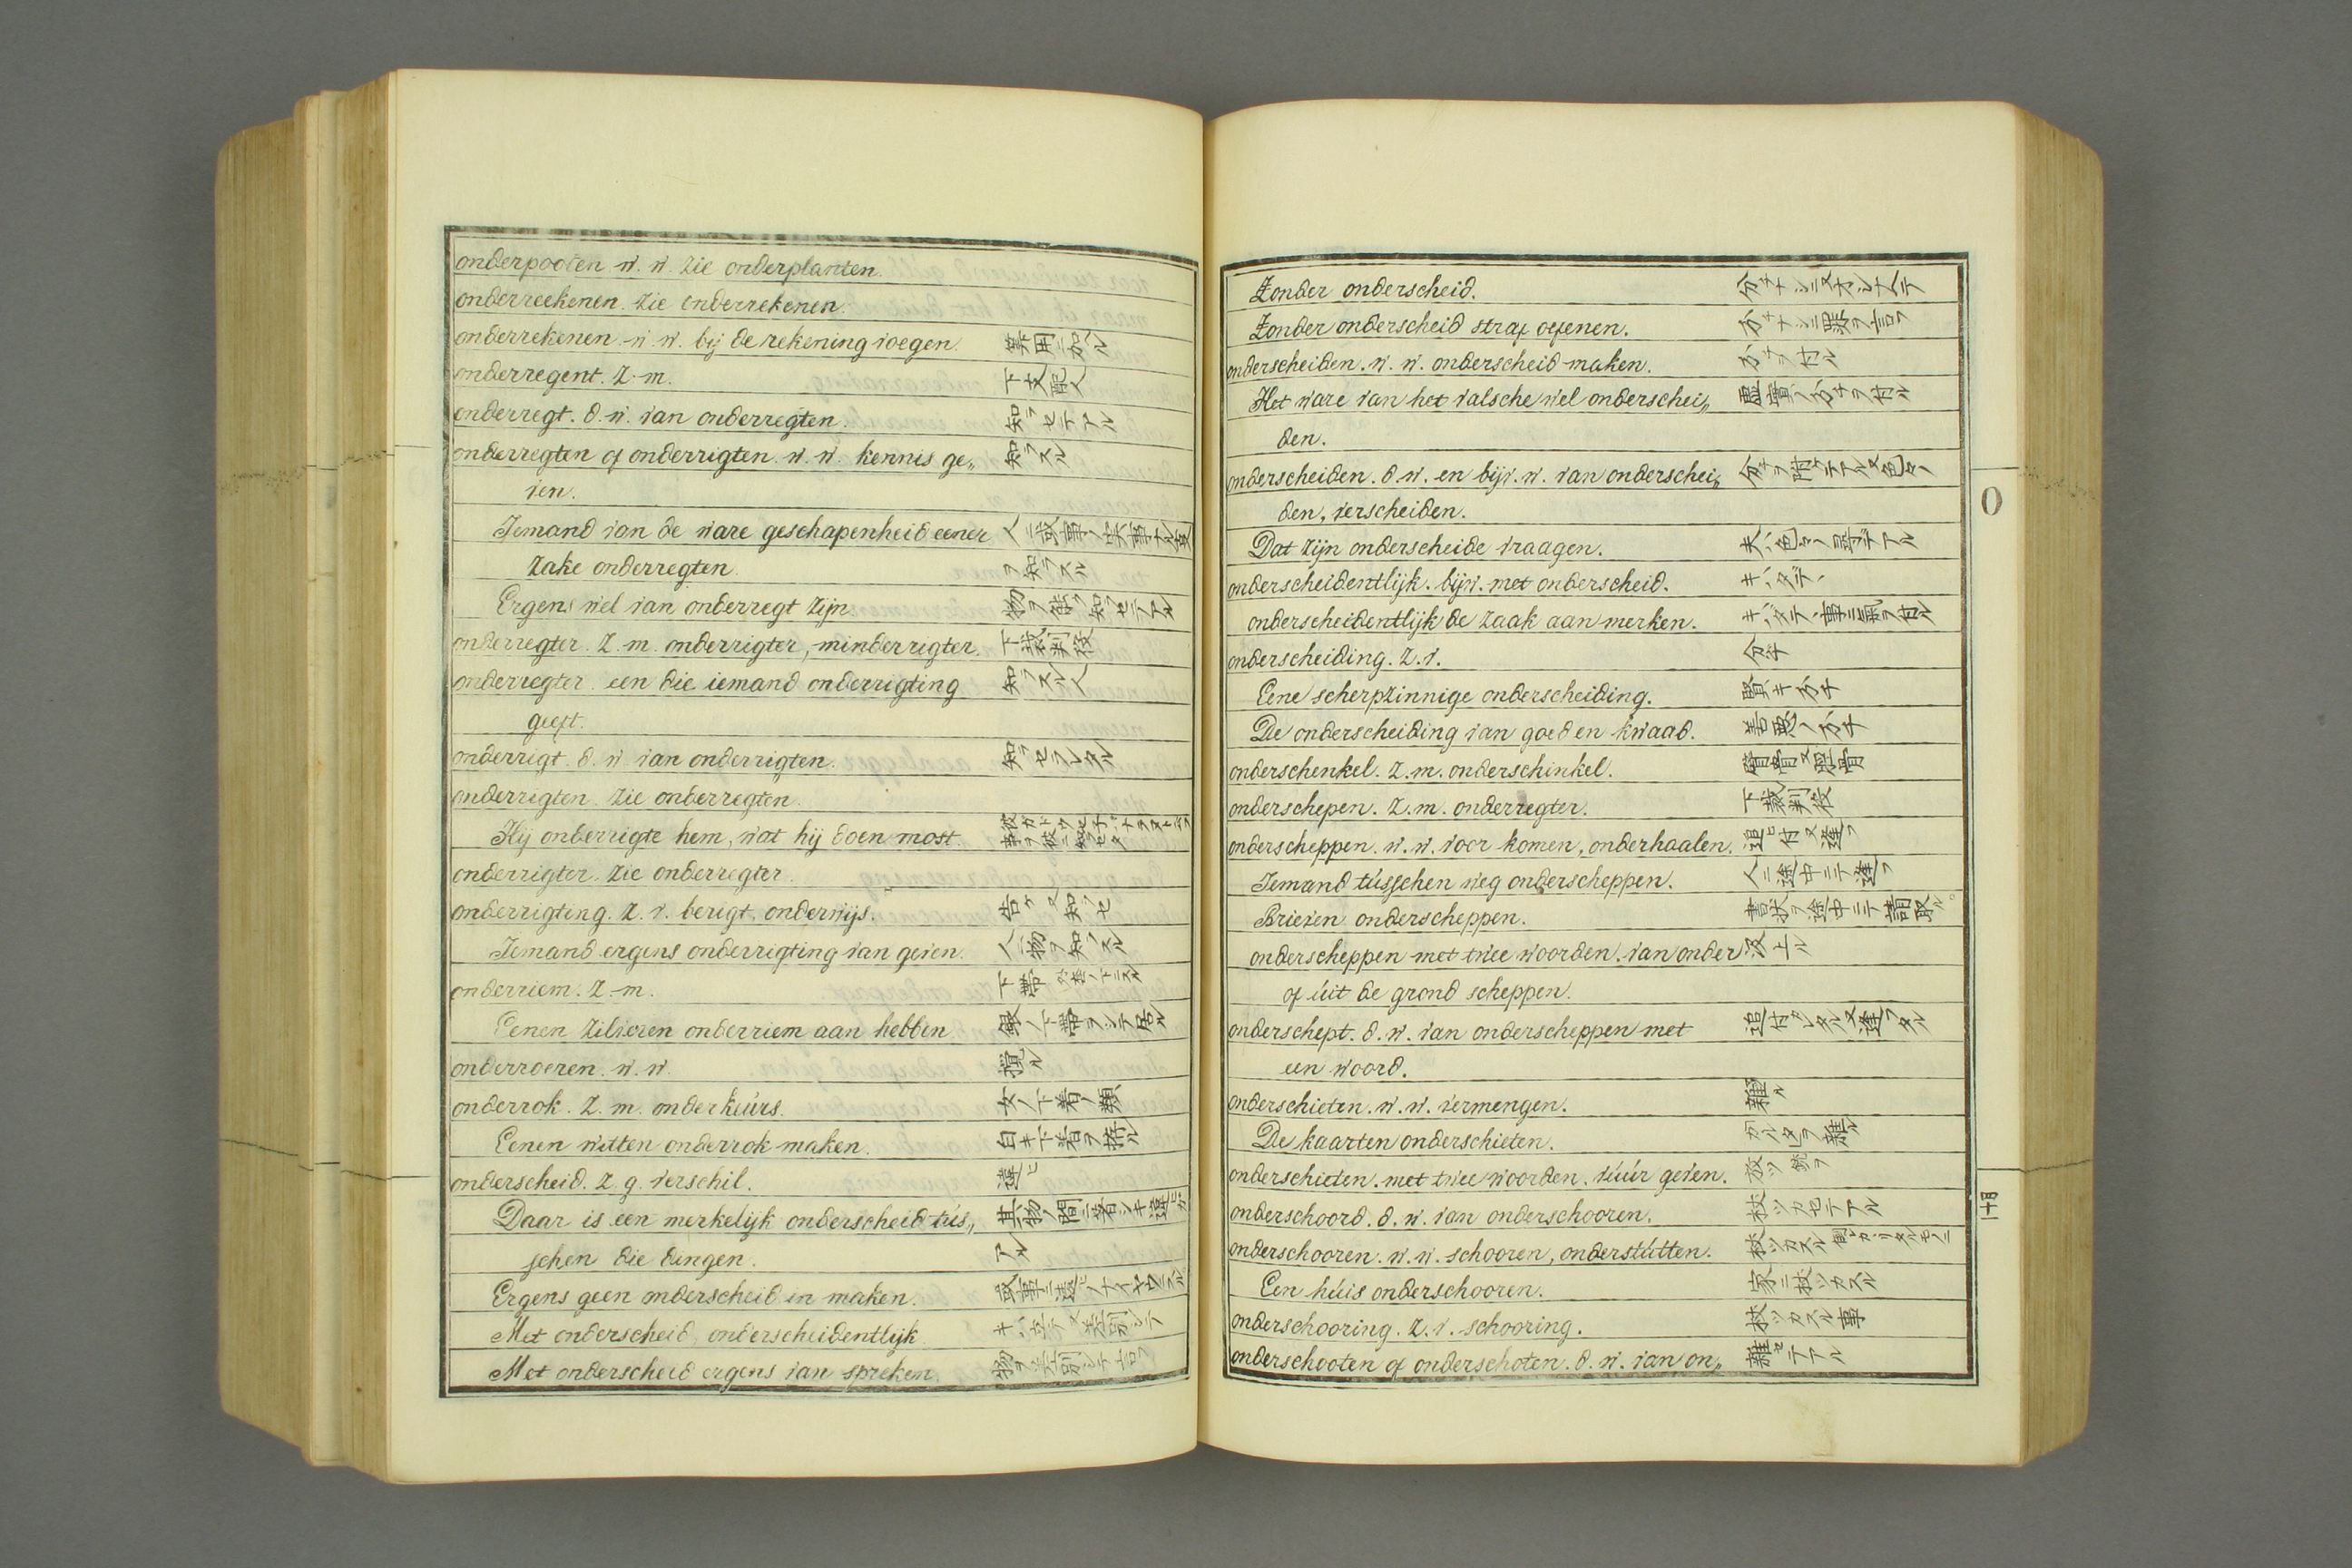 onderpooten w. w. zie onderplanten.
onderreekenen. zie onderrekenen.
onderrekenen. w. w. bij de rekening voegen. 算用ニ加ル
onderregent. z. m. 下支配人
onderregt. d. w. van onderregten. 知ラセテアル
onderregten of onderrigten. w. w. kennis ge„ 知ラスル
ven.
Iemand van de ware geschapenheid eener 人ニ或事ノ実事ナル處
zake onderregten. ヲ知ラスル
Ergens wel van onderregt zijn. 物ヲ能ク知ラセテアル
onderregter. z. m. onderrigter, minderrigter. 下裁判役
onderregter. een die iemand onderrigting 知ラスル人
geeft.
onderrigt. d. w van onderrigten. 知ラセラレタル
onderrigten. zie onderregten.
Hij onderrigte hem, wat hij doen most.
onderrigter. zie onderregter.
onderrigting. z. v. berigt, onderwijs. 告ケ又知ラセ
Iemand ergens onderrigting van geven. 人ニ物ヲ知ラスル
onderriem. z. m. 下帯
Eenen zilveren onderriem aan hebben 銀ノ下帯ヲシテ居ル
onderroeren. w. w. 攪ル
onderrok. z. m. onderkeúrs. 女ノ下着ノ類
Eenen witten onderrok maken. 白キ下着ヲ拵ル
onderscheid. z. g. verschil. 違ヒ
Daar is een merkelijk onderscheid tús„ 其物ノ間ニ著シキ違ヒガ
schen die dingen. アル
Ergens geen onderscheid in maken. 或事ニ違ヒノナイヤウニスル
Met onderscheid, onderscheidentlijk
Met onderscheid ergens van spreken. 物ヲ差別シテ言フ
Zonder onderscheid.
Zonder onderscheid straf oefenen. 分チナシニ罪ヲ言フ
onderscheiden. w. w. onderscheid maken. 分チヲ付ル
Het ware van het valsche wel onderschei„ 虚實ノ分チヲ付ル
den.
onderscheiden. d. w. en bijv. w. van onderschei„ 分チヲ附ケテアル又色々ノ
den, verscheiden.
Dat zijn onderscheide vraagen.
onderscheidentlijk. bijw. met onderscheid.
onderscheidentlijk de zaak aan merken.
onderscheiding. z. v. 分チ
Eene scherpzinnige onderscheiding. 賢キ分チ
De onderscheiding van goed en kwaad. 善悪ノ分チ
onderschenkel. z. m. onderschinkel.
onderschepen. z. m. onderregter. 下裁判役
onderscheppen. w. w. voor komen, onderhaalen. 追ヒ付又逢フ
Iemand tússchen weg onderscheppen. 人ニ途中ニテ逢フ
Brieven onderscheppen. 書状ヲ途中ニテ奪取ル
onderscheppen met twee woorden. van onder 汲上ル
of úit de grond scheppen.
onderschept. d. w. van onderscheppen met 追付タル又逢フタル
een woord.
onderschieten. w. w. vermengen. 雜ル
De kaarten onderschieten. カルタヲ雜ル
onderschieten. met twee woorden. vúúr geven. 放ツ銃ヲ
onderschoord. d. w. van onderschooren. 杖ツカセテアル
onderschooren. w. w. schooren, onderstútten. 杖ツカスル
Een húis onderschooren. 家ニ杖ツカスル
onderschooring. z. v. schooring. 杖ツカスル事
onderschooten of onderschoten. d. w. van on„ 雜セテアル
O